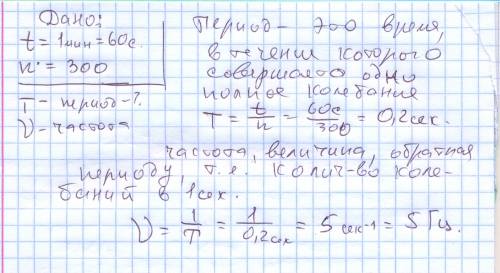 Дано:
t = 1мин = 60с.
n = 300
T - период - ?
ν - частота
Период - это время,
в течени которого
совершает одно
полное колебание
T = t/n = 60с/300 = 0,2 сек.
частота, величина, обратная
периоду, т.е. колич-во коле-
баний в 1 сек.
ν = 1/T = 1/0,2сек = 5 сек-1 = 5 Гц.